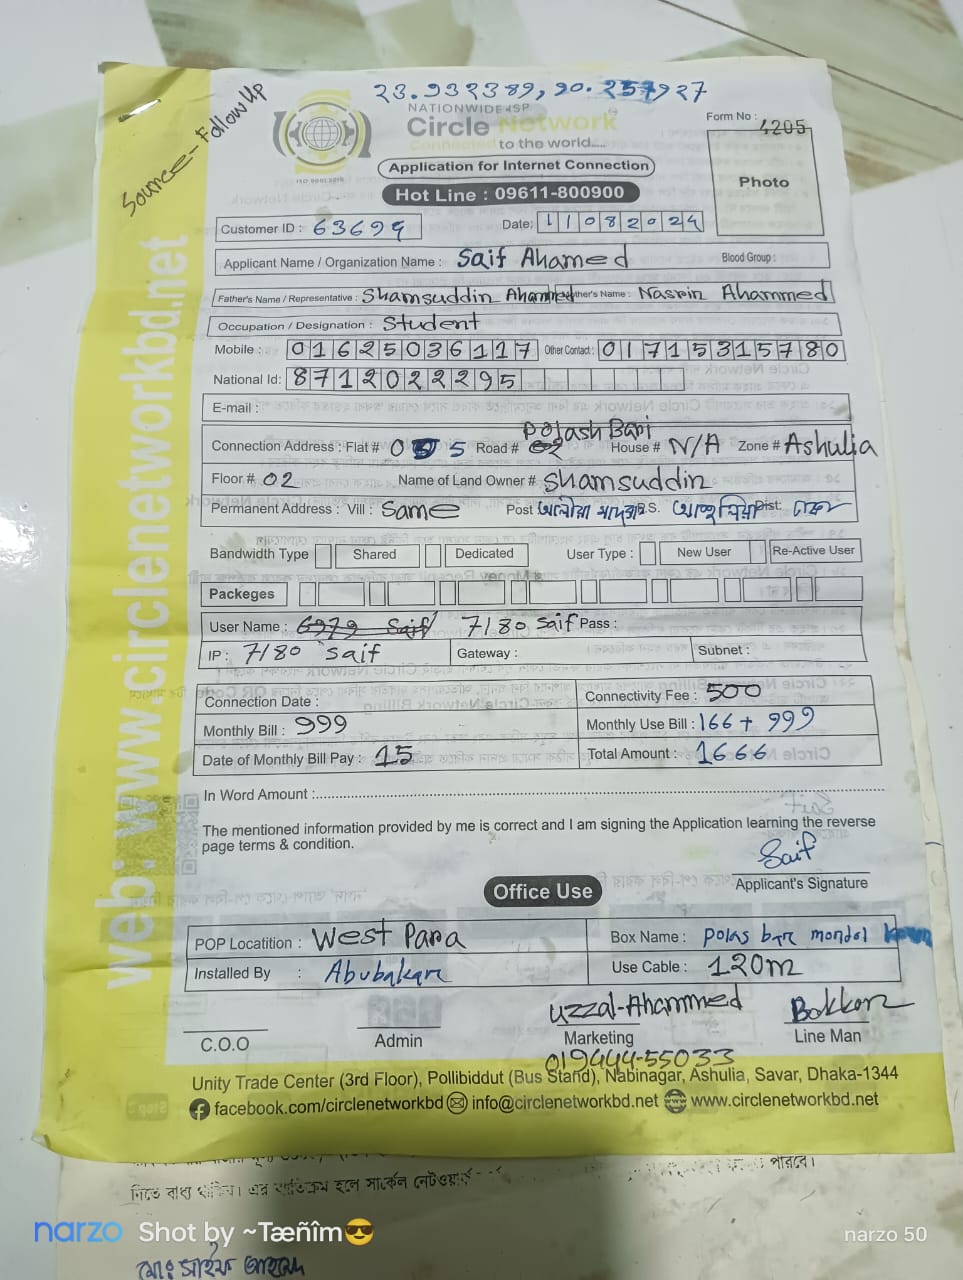 23.932389, 90.257927
Source - Follow Up
NATIONWIDE ISP
Circle Network
Connected to the world.....
ISO 9001:2015
Form No : 4205
Application for Internet Connection
Photo
Hot Line : 09611-800900
Customer ID : 63694 Date: 11082024
Applicant Name / Organization Name : Saif Ahamed Blood Group :
Father's Name / Representative : Shamsuddin Ahammed Mother's Name : Nasrin Ahammed
Occupation / Designation : Student
Mobile : 01625036117 Other Contact : 01715315780
National Id: 8712022295
E-mail :
Polash Bari
Connection Address : Flat # 05 Road # House # N/A Zone # Ashulia
Floor # 02 Name of Land Owner # Shamsuddin
Permanent Address : Vill : Same Post P.S. আশুলিয়া Dist: ঢাকা
Bandwidth Type Shared Dedicated User Type : New User Re-Active User
Packeges
User Name : 6979 Saif 7180 saif Pass :
IP : 7180 saif Gateway : Subnet :
Connection Date : Connectivity Fee : 500
Monthly Bill : 999 Monthly Use Bill : 166 + 999
Date of Monthly Bill Pay : 15 Total Amount : 1666
In Word Amount :
The mentioned information provided by me is correct and I am signing the Application learning the reverse
page terms & condition.
Saif
Applicant's Signature
Office Use
POP Locatition : West Para Box Name : Polas bar mondol
Installed By : Abubakar Use Cable : 120m
Uzzal-Ahammed Bakkar
C.O.O Admin Marketing Line Man
019444-55033
Unity Trade Center (3rd Floor), Pollibiddut (Bus Stand), Nabinagar, Ashulia, Savar, Dhaka-1344
facebook.com/circlenetworkbd info@circlenetworkbd.net www.circlenetworkbd.net
web: www.circlenetworkbd.net
পারবে।
নিতে বাধ্য থাকিব। এর ব্যতিক্রম হলে সার্কেল নেটওয়ার্ক
narzo Shot by ~Tæñîm😎 narzo 50
মোঃ সাইফ আহমেদ